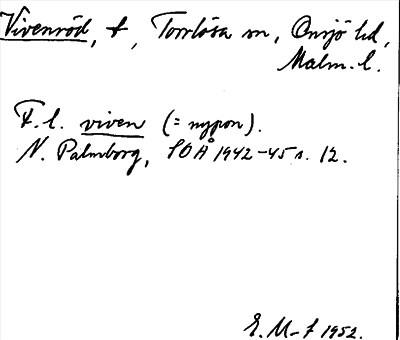 Vivenröd, t, Torrlösa sn, Onsjö hd,
Malm. l.
F. l. viven (= nypon).
N. Palmborg, SOÅ 1942–45 s. 12.
E. M-f 1952.